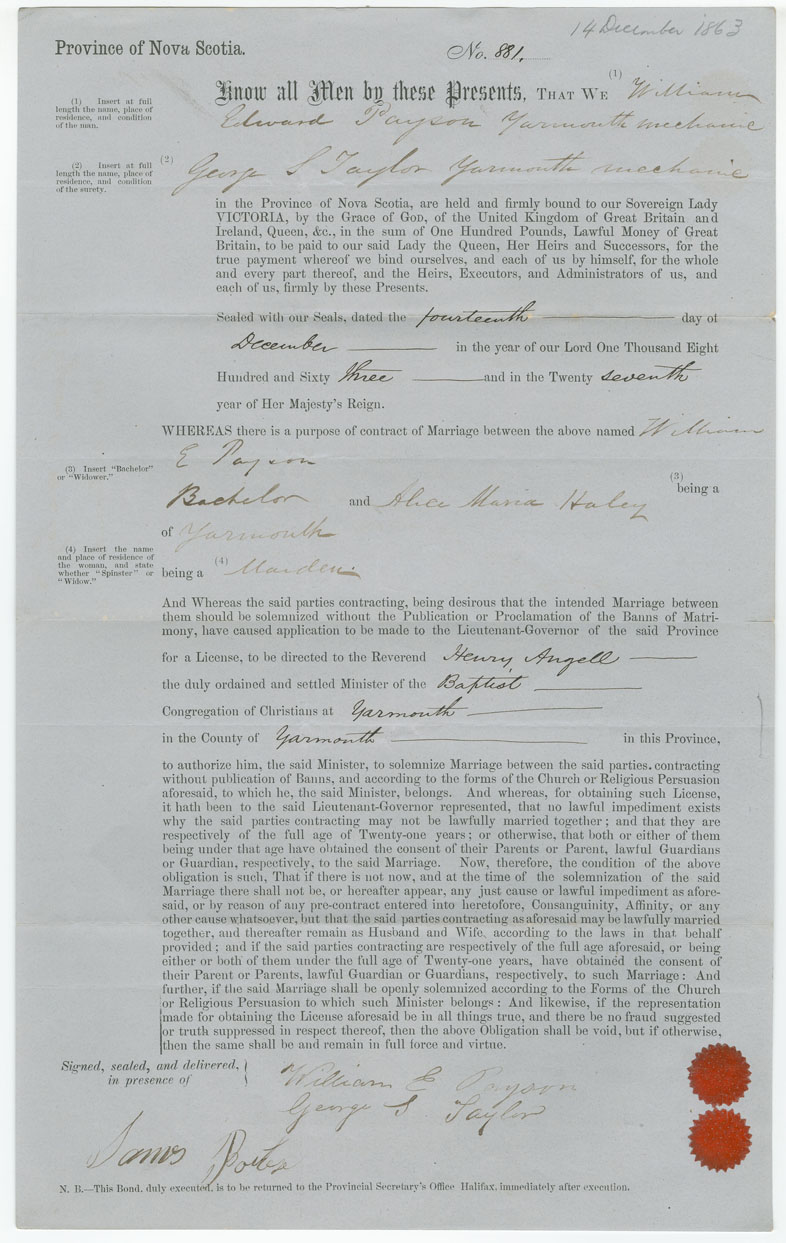 14 December 1863
Province of Nova Scotia.
No. 881,
Know all Men by these Presents, THAT WE (1) William
Edward Payson Yarmouth mechanic
(1) Insert at full
length the name, place of
residence, and condition
of the man.
(2) George S Taylor Yarmouth mechanic
(2) Insert at full
length the name, place of
residence, and condition
of the surety.
in the Province of Nova Scotia, are held and firmly bound to our Sovereign Lady
VICTORIA, by the Grace of GOD, of the United Kingdom of Great Britain and
Ireland, Queen, &c., in the sum of One Hundred Pounds, Lawful Money of Great
Britain, to be paid to our said Lady the Queen, Her Heirs and Successors, for the
true payment whereof we bind ourselves, and each of us by himself, for the whole
and every part thereof, and the Heirs, Executors, and Administrators of us, and
each of us, firmly by these Presents.
Sealed with our Seals, dated the fourteenth day of
December in the year of our Lord One Thousand Eight
Hundred and Sixty three and in the Twenty seventh
year of Her Majesty's Reign.
WHEREAS there is a purpose of contract of Marriage between the above named William
E Payson
(3) being a
(3) Insert "Bachelor"
or "Widower."
Bachelor and Alice Maria Haley
of Yarmouth
being a (4) Maiden.
(4) Insert the name
and place of residence of
the woman, and state
whether "Spinster" or
"Widow."
And Whereas the said parties contracting, being desirous that the intended Marriage between
them should be solemnized without the Publication or Proclamation of the Banns of Matri-
mony, have caused application to be made to the Lieutenant-Governor of the said Province
for a License, to be directed to the Reverend Henry Angell
the duly ordained and settled Minister of the Baptist
Congregation of Christians at Yarmouth
in the County of Yarmouth in this Province,
to authorize him, the said Minister, to solemnize Marriage between the said parties. contracting
without publication of Banns, and according to the forms of the Church or Religious Persuasion
aforesaid, to which he, the said Minister, belongs. And whereas, for obtaining such License,
it hath been to the said Lieutenant-Governor represented, that no lawful impediment exists
why the said parties contracting may not be lawfully married together; and that they are
respectively of the full age of Twenty-one years; or otherwise, that both or either of them
being under that age have obtained the consent of their Parents or Parent, lawful Guardians
or Guardian, respectively, to the said Marriage. Now, therefore, the condition of the above
obligation is such, That if there is not now, and at the time of the solemnization of the said
Marriage there shall not be, or hereafter appear, any just cause or lawful impediment as afore-
said, or by reason of any pre-contract entered into heretofore, Consanguinity, Affinity, or any
other cause whatsoever, but that the said parties contracting as aforesaid may be lawfully married
together, and thereafter remain as Husband and Wife, according to the laws in that behalf
provided; and if the said parties contracting are respectively of the full age aforesaid, or being
either or both of them under the full age of Twenty-one years, have obtained the consent of
their Parent or Parents, lawful Guardian or Guardians, respectively, to such Marriage: And
further, if the said Marriage shall be openly solemnized according to the Forms of the Church
or Religious Persuasion to which such Minister belongs: And likewise, if the representation
made for obtaining the License aforesaid be in all things true, and there be no fraud suggested
or truth suppressed in respect thereof, then the above Obligation shall be void, but if otherwise,
then the same shall be and remain in full force and virtue.
Signed, sealed, and delivered,
in presence of
William E Payson
George S. Taylor
N. B.—This Bond, duly executed, is to be returned to the Provincial Secretary's Office Halifax, immediately after execution.